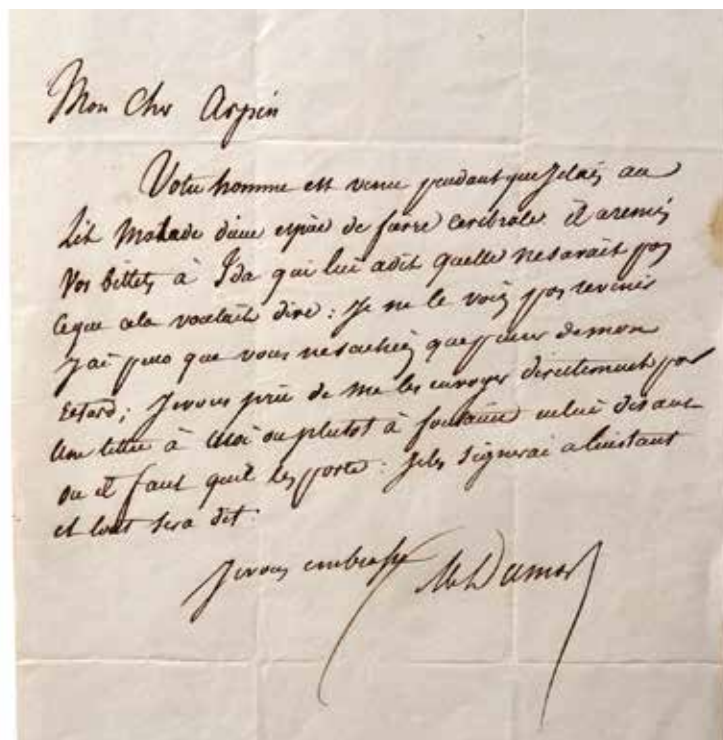 Mon Cher Arpin
Votre homme est venu pendant que j'étais au
Lit Malade d'une espèce de fièvre cérébrale il a remis
Vos billets à Ida qui lui a dit quelle ne savait pas
ceque cela voulait dire : Je ne le vois pas revenir
J'ai peur que vous ne sachiez que penser de mon
retard ; Je vous prie de me les envoyer directement par
Une lettre à Moi ou plutot à fontaine en lui disant
ou il faut quil les porte. Je les signerai a linstant
et tout sera dit.
Je vous embrasse Al Dumas